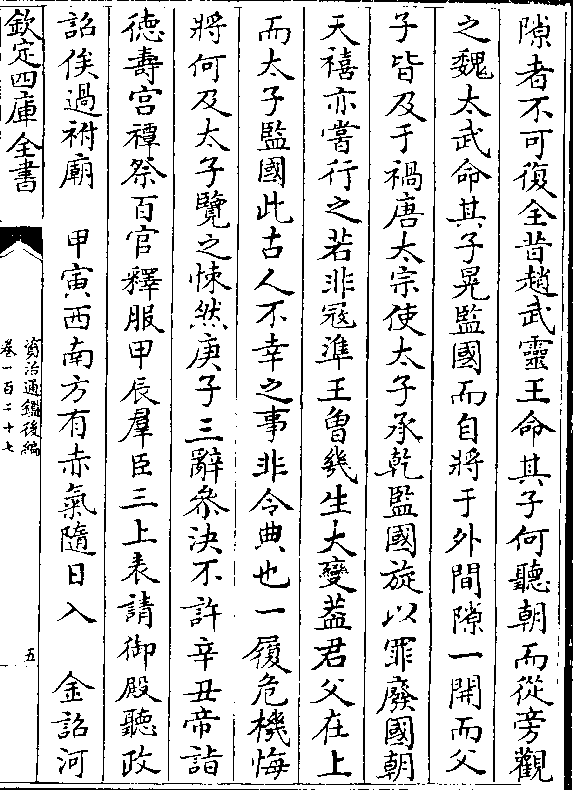 隙者不可復全昔趙武靈王命其子何聽朝而從旁觀
之魏太武命其子晃監國而自將于外間隙一開而父
子皆及于禍唐太宗使太子承乾監國旋以罪廢國朝
天禧亦嘗行之若非冦準王曾幾生大變葢君父在上
而太子監國此古人不幸之事非令典也一履危機悔
將何及太子覽之悚然庚子三辭叅決不許辛丑帝詣
徳壽宫禫祭百官釋服甲辰羣臣三上表請御殿聽政
詔俟過祔廟　甲寅西南方有赤氣隨日入　金詔河
欽定四庫全書
資治通鑑後編
卷一百二十七
五